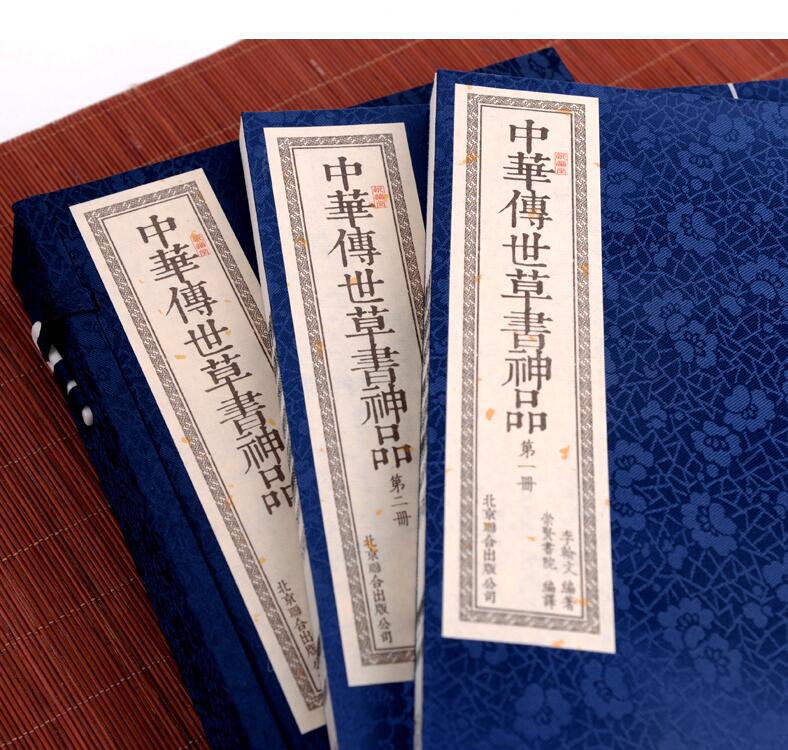 中華傳世草書神品 第一冊
李翰文 編著
崇賢書院 編譯
北京聯合出版公司
中華傳世草書神品 第二冊
北京聯合出版公司
中華傳世草書神品
北京聯合出版